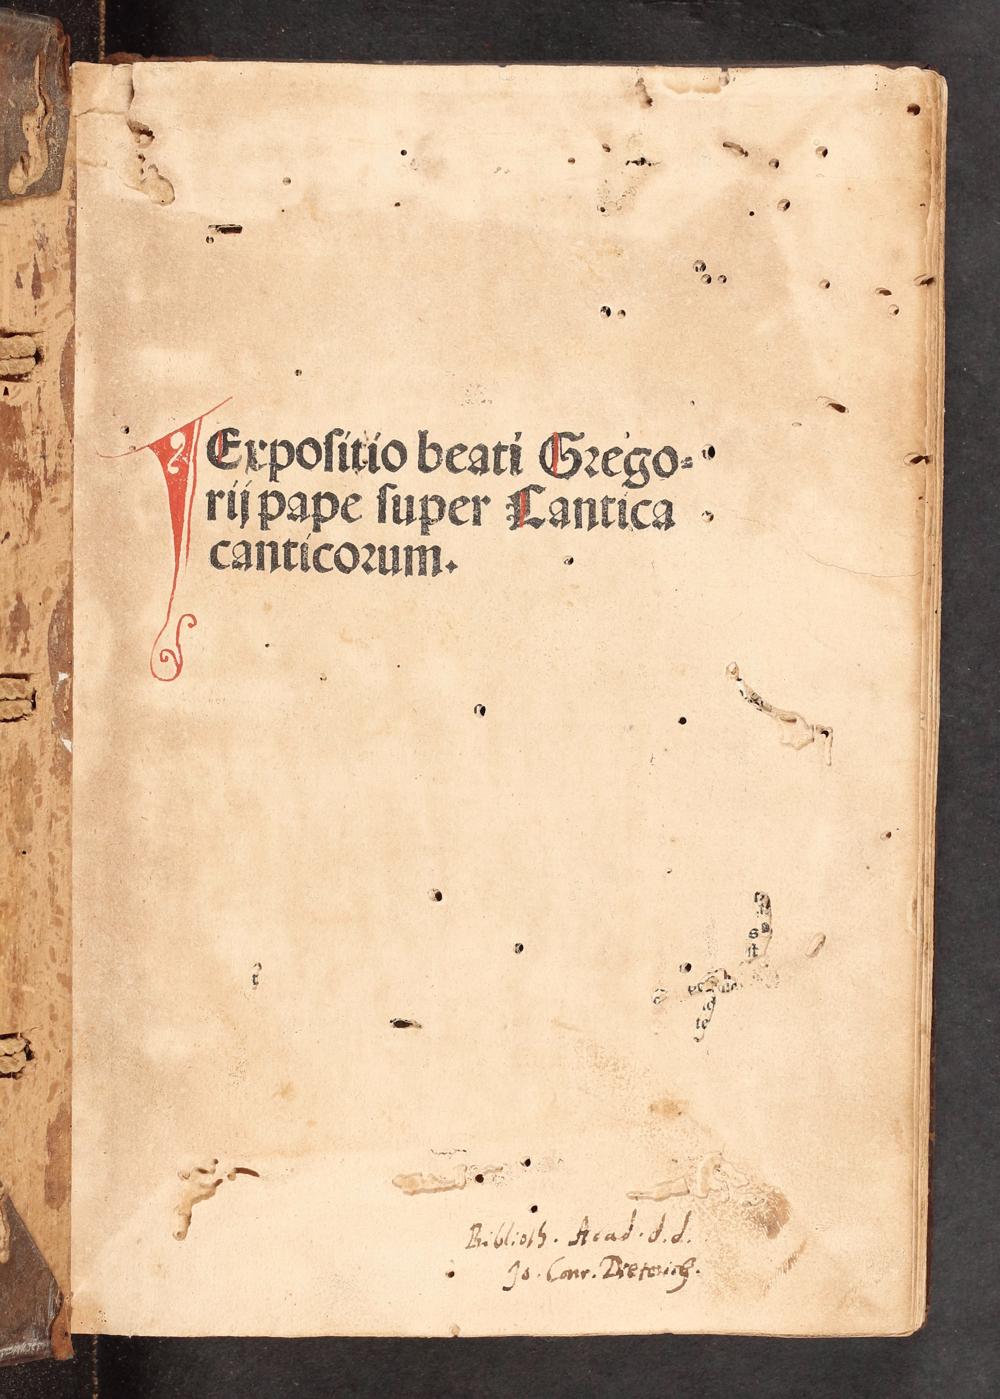 Expositio beati Grego⸗
rij pape super Cantica
canticorum.
Biblioth. Acad. d. d.
Jo. Conr. Dieterich.